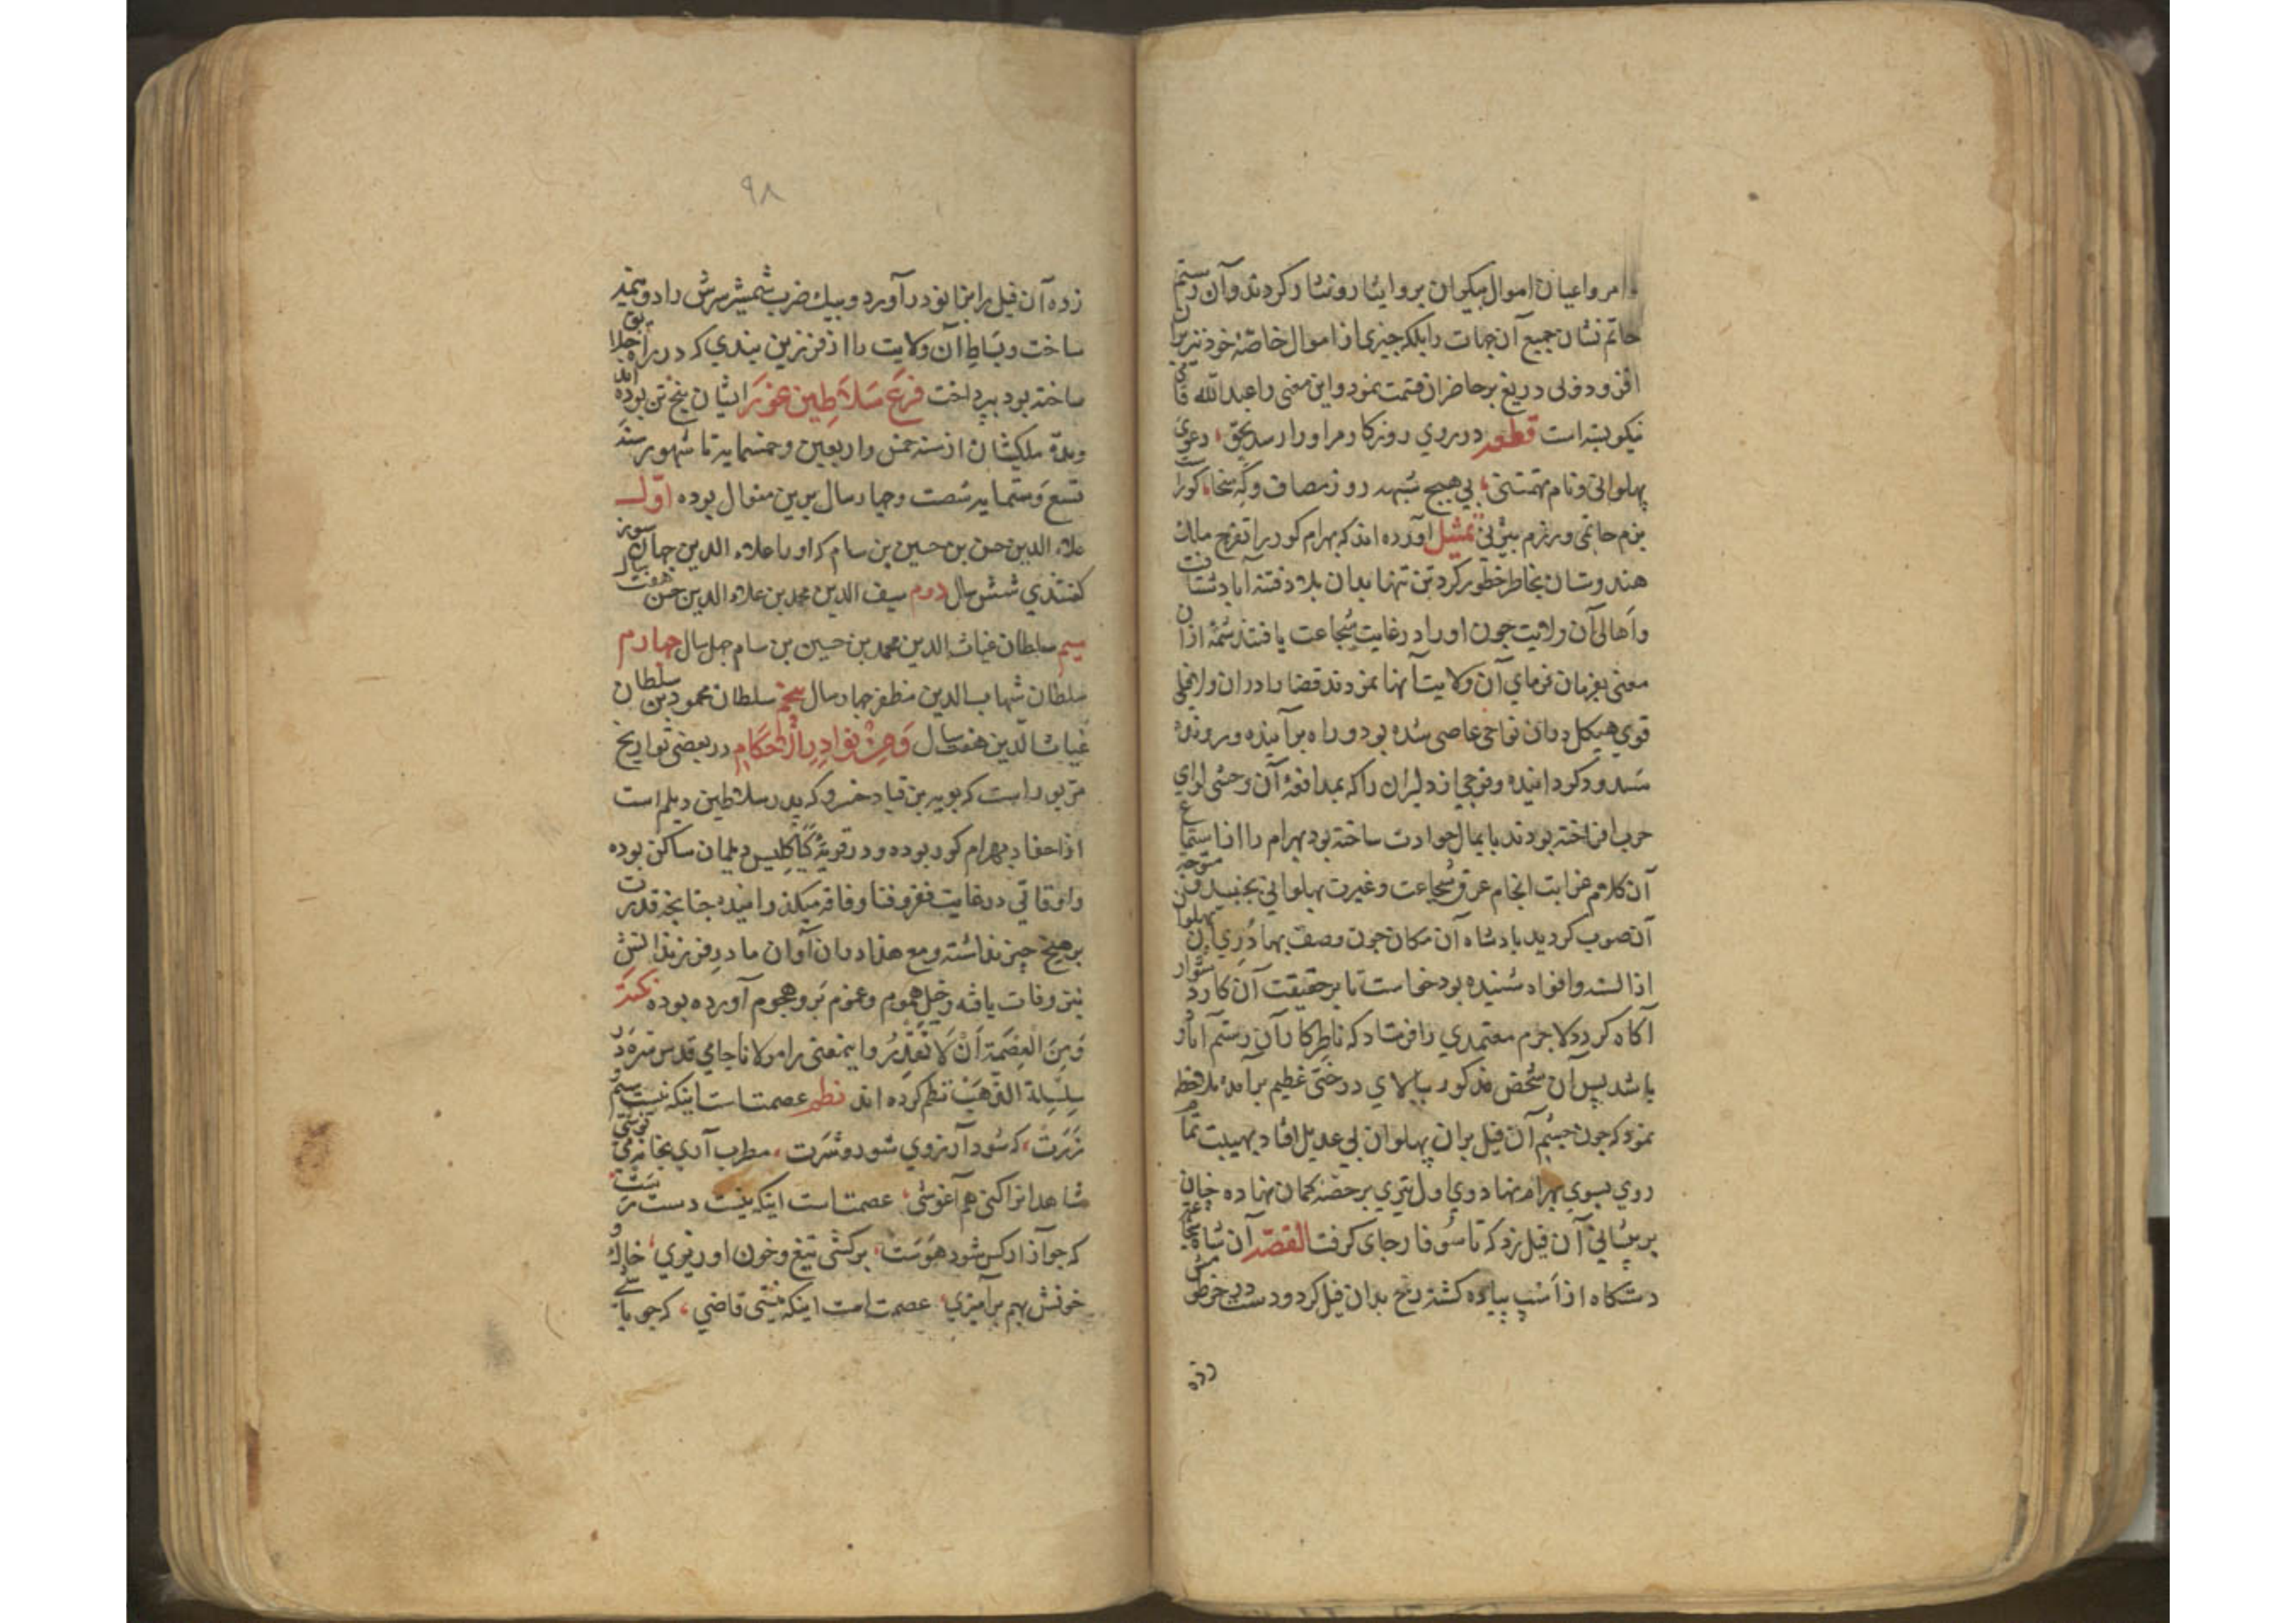 امرا و اعیان اموال بیکران بر و ایثار و نثار کردند و آن رستم
حاتم نشان جمیع آن جهات را بلکه چیزی از اموال خاصهٔ خود نیز بران
افزود و فی دریغ بر حاضران قسمت نمود و این معنی را عبدالله
نیکو بسته است قطعه در روی روزکار مر او را رسد بحق، دعوی
پهلوانی و نام تهمتنی، بی هیچ شبهه روز مصاف و که سخا، کوراست
بزم حاتمی و رزم بیژنی تمثیل آورده اند که بهرام کور را تفرج ملک
هندوستان بخاطر خطور کرد تن تنها بدان بلاد فتنه آباد شتافت
و اهالی آن ولایت چون او را در غایت شجاعت یافتند شمهٔ ازان
معنی بفرمان فرمای آن ولایت آنها نمودند قضا را دران ولا فیلی
قوی هیکل دران نواحی عاصی شده بود و راه بر آینده و رونده
مسدود کردانیده و فوجی از دلیران را که بمدافعهٔ آن وحشی لوای
حرب افراخته بودند پایمال حوادث ساخته بود بهرام را از استماع
آن کلام غرابت انجام عرق شجاعت و غیرت پهلوانی بجنبید متوجه
آن صوب کردید پادشاه آن مکان چون وصف بهادری آن پهلوان
از السنه و افواه شنیده بود خواست تا بر حقیقت آن کار دشوار
آکاه کردد لاجرم معتمدی را فرستاد که ناظر کار آن رستم آثار
باشد پس آن شخص مذکور ببالای درختی عظیم برآمده ملاحظه
نمود که چون چشم آن فیل بران پهلوان بی عدیل افتاد بهیبت تمام
روی بسوی بهرام نهاد وی اول تیری بر حصنه کمان نهاده چنان
بر پیشانی آن فیل زد که تا سوفار جای کرفت القصه آن شاه
دستکاه از اسپ پیاده کشته رخ بدان فیل کرد و دست در خرطومش
زده
۹۸
زده آن فیل را بزانو در آورد و بیک ضرب شمشیر سرش را دو نیمه
ساخت و بساط آن ولایت را از فرزین بندی که در راه
ساخته بود بپرداخت فرع سلاطین غور ایشان پنج تن بوده اند
و مدة ملکیشان از سنه خمس و اربعین و خمسمایه تا شهور سنه
تسع و ستمایه شصت و چهار سال برین منوال بوده اول
علاء الدین حسن بن حسین بن سام که او را علاء الدین جهان سوز
کفتندی شش سال دوم سیف الدین محمد بن علاء الدین حسن هفت سال
سیم سلطان غیاث الدین محمد بن حسین بن سام چهل سال چهارم
سلطان شهاب الدین مظفر چهار سال پنجم سلطان محمود بن سلطان
غیاث الدین هفت سال و من نوادر الاحکام در بعضی تواریخ
مزبور است که بویه بن قباد خسرو که پدر سلاطین دیلم است
از احفاد بهرام کور بوده و در قریهٔ کیاکلیس دیلمان ساکن بوده
و اوقاتی در غایت فقر و فنا و فاقه میکذرانیده چنانچه قدرت
بر هیچ چیز نداشته و مع هذا دران آوان مادر فرزندانش
نیز وفات یافته و خیل هموم و غموم برو هجوم آورده بوده نکته
و من العصمة ان لا تقدر و اینمعنی را مولانا جامی قدس سره در
سلسلة الذهب نظم کرده اند نظم عصمتست اینکه نیست سیم و
زرت، که شود آرزوی شور و شرت، مطرب آری بخانه می نوشی
شاهدانرا کنی هم آغوشی، عصمتست اینکه نیست دست رست
که چو آزاد کس شود هوست، برکشی تیغ و خون او ریزی، خاک و
خونش بهم برآمیزی، عصمتست اینکه نیستی قاضی، که چو با